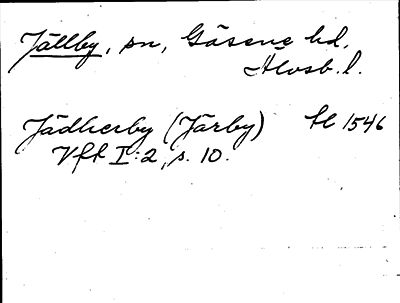 Jällby, sn, Gäsene hd,
Älvsb. l.
Jädherby (Järby) hl 1546
Vft I:2, s. 10.